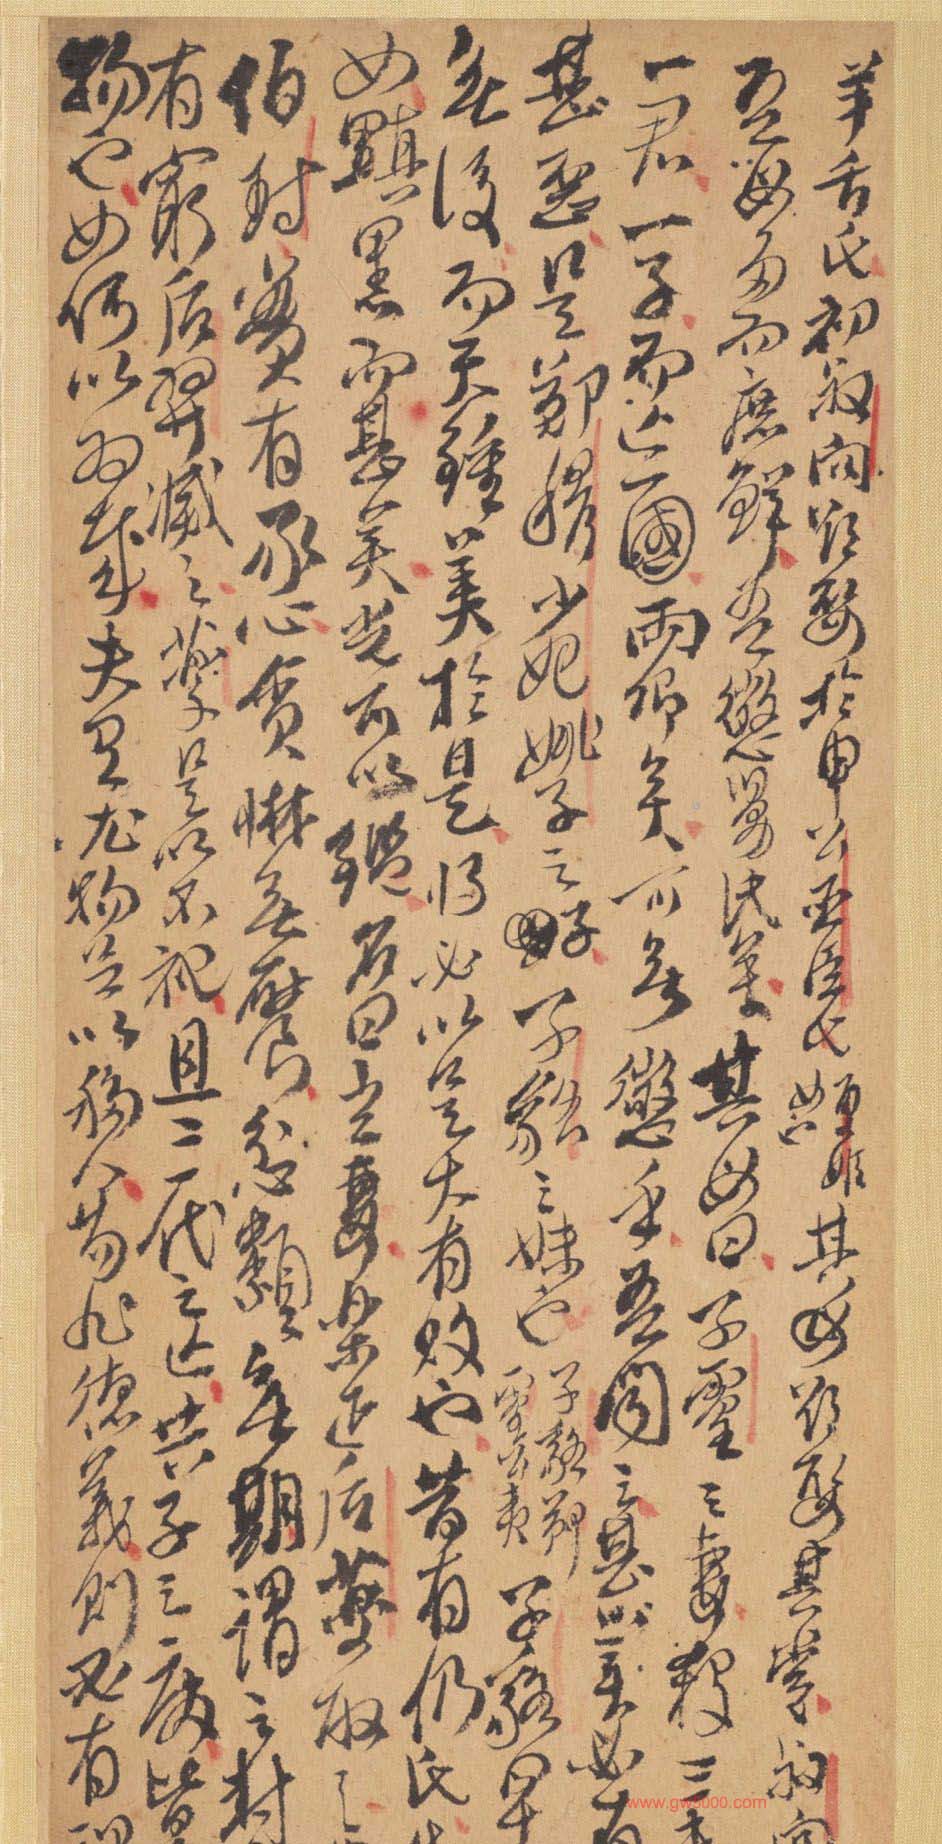 羊舌氏初叔向欲娶於申公巫臣氏夏姬女其母欲娶其黨叔向
吾母多而庶鮮吾懲舅氏矣其母曰子靈之妻殺三夫
一君一子而亡一國兩卿矣可無懲乎吾聞之甚美必有
甚惡是鄭穆少妃姚子之子子貉之妹也子貉鄭靈公夷子貉早
無後而天鍾美於是將必以是大有敗也昔有仍氏
女黰黑而甚美光可以鑑名曰玄妻樂正后夔取之
伯封實有豕心貪惏無饜忿纇無期謂之封
有窮后羿滅之夔是以不祀且三代之亡共子之廢皆
物也女何以為哉夫有尤物足以移人苟非德義則必有禍
www.gw5000.com